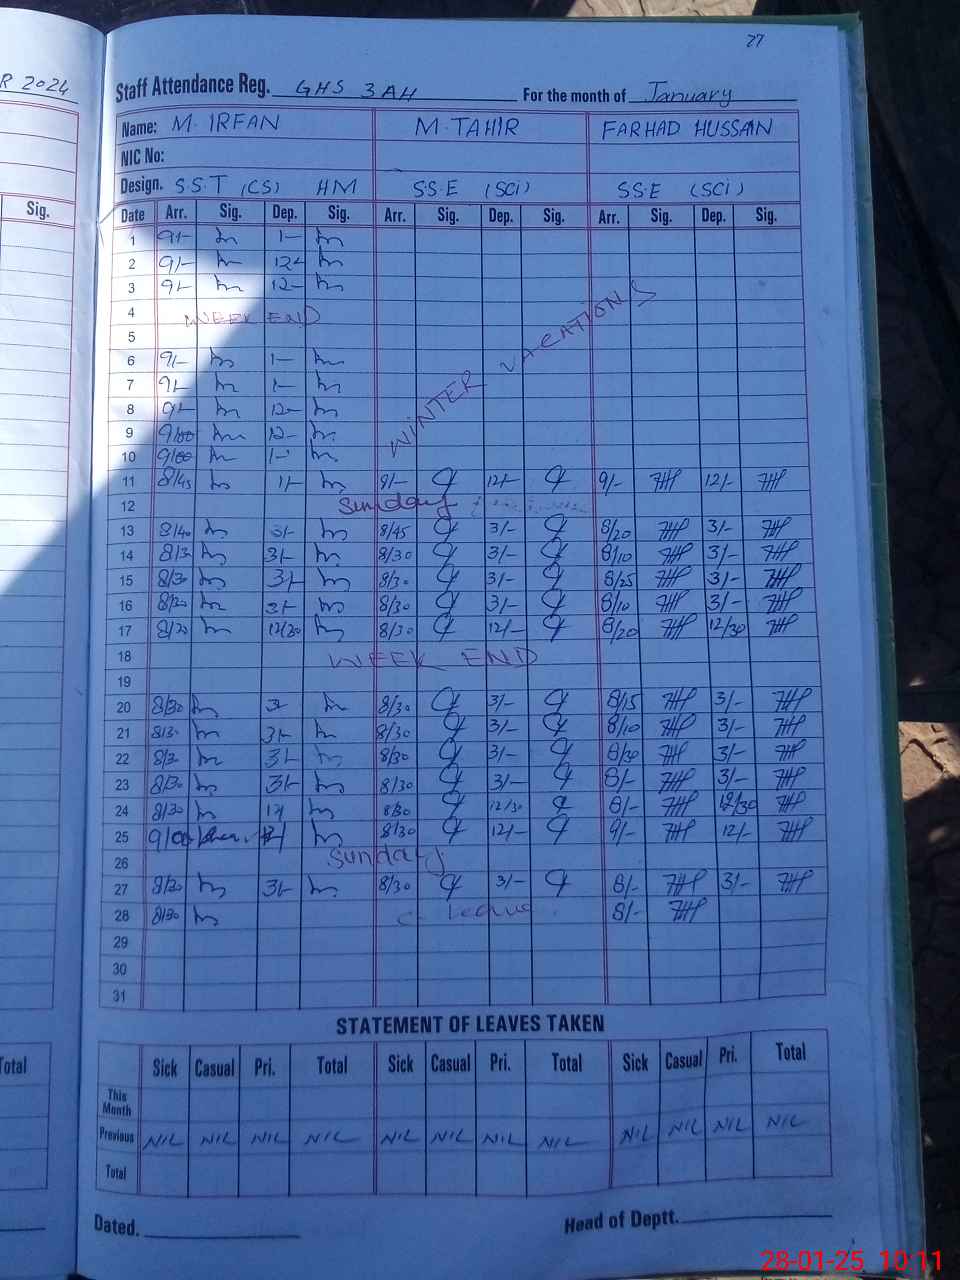 R 2024
27
Staff Attendance Reg. GHS 3AH For the month of January
Name: M. IRFAN M. TAHIR FARHAD HUSSAIN
NIC No:
Design. S.S.T (CS) HM S.S.E (SCI) S.S.E (SCI)
Sig.
Date Arr. Sig. Dep. Sig. Arr. Sig. Dep. Sig. Arr. Sig. Dep. Sig.
1 9/- 1-
2 9/- 12-
3 9/- 12-
4 WEEK END
WINTER VACATIONS
5
6 9/- 1-
7 9/- 1-
8 9/- 12-
9 9/00 12-
10 9/00 1-
11 8/45 1/- 9/- 12/- 9/- 12/-
12 Sunday
13 8/40 3/- 8/45 3/- 8/20 3/-
14 8/30 3/- 8/30 3/- 8/10 3/-
15 8/30 3/- 8/30 3/- 8/25 3/-
16 8/30 3/- 8/30 3/- 8/10 3/-
17 8/20 12/30 8/30 12/- 8/20 12/30
18 WEEK END
19
20 8/30 3- 8/30 3/- 8/15 3/-
21 8/30 3/- 8/30 3/- 8/10 3/-
22 8/30 3/- 8/30 3/- 8/30 3/-
23 8/30 3/- 8/30 3/- 8/- 3/-
24 8/30 8/30 12/30 8/- 12/30
25 9/00 8/30 12/- 9/- 12/-
26 Sunday
27 8/30 3/- 8/30 3/- 8/- 3/-
28 8/30 C. Leave 8/-
29
30
31
STATEMENT OF LEAVES TAKEN
Total Sick Casual Pri. Total Sick Casual Pri. Total Sick Casual Pri. Total
This Month
Previous NIL NIL NIL NIL NIL NIL NIL NIL NIL NIL NIL NIL
Total
Dated. Head of Deptt.
28-01-25 10:11